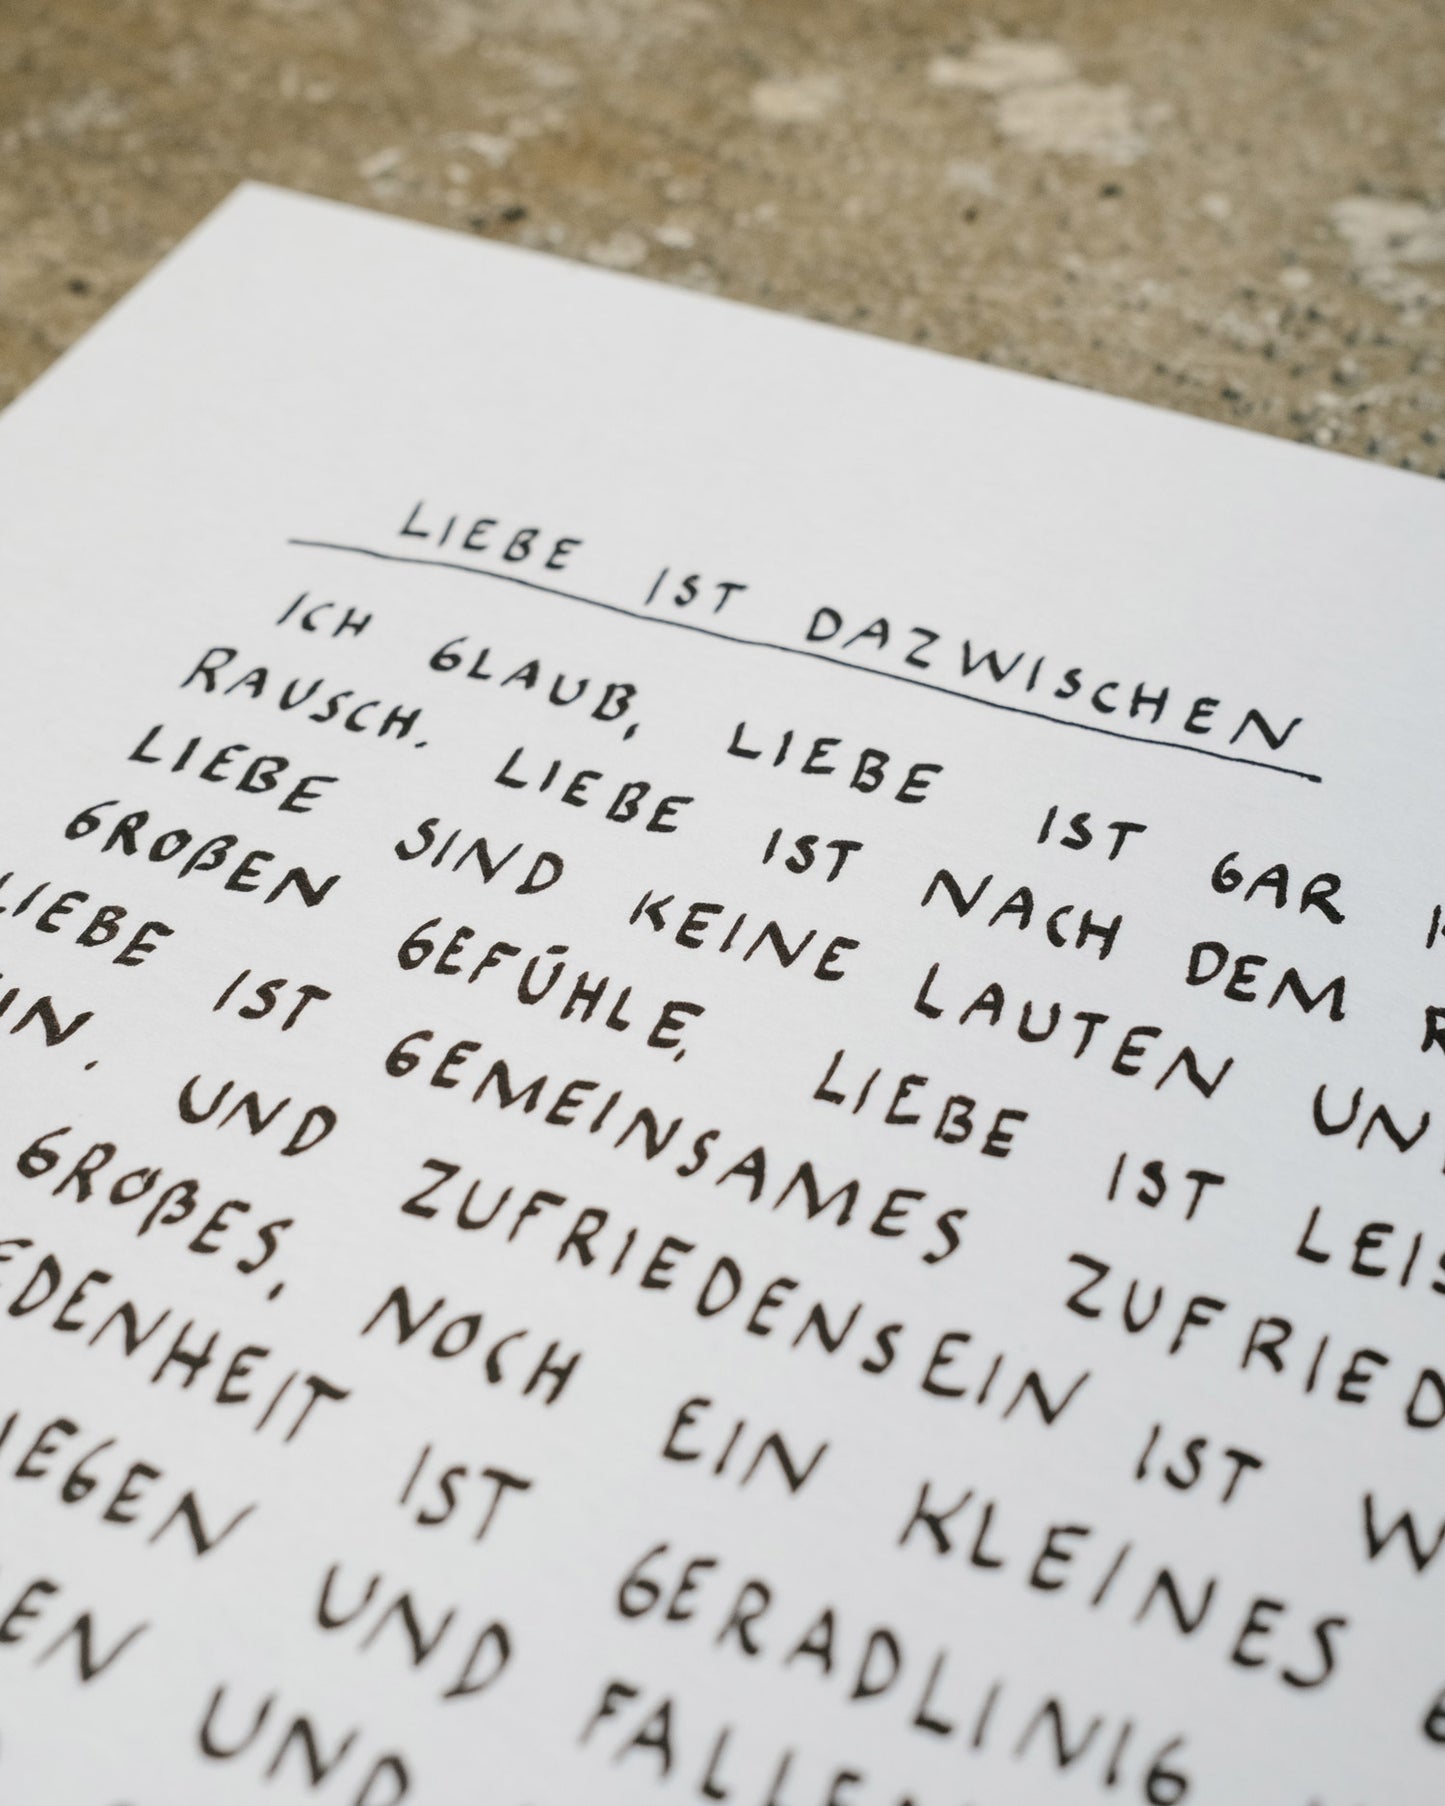 LIEBE IST DAZWISCHEN
ICH GLAUB, LIEBE IST GAR
RAUSCH. LIEBE IST NACH DEM
LIEBE SIND KEINE LAUTEN
GROßEN GEFÜHLE. LIEBE IST
LIEBE IST GEMEINSAMES
UND ZUFRIEDENSEIN IST
GROßES, NOCH EIN KLEINES
IST GERADLINIG
UND
UND